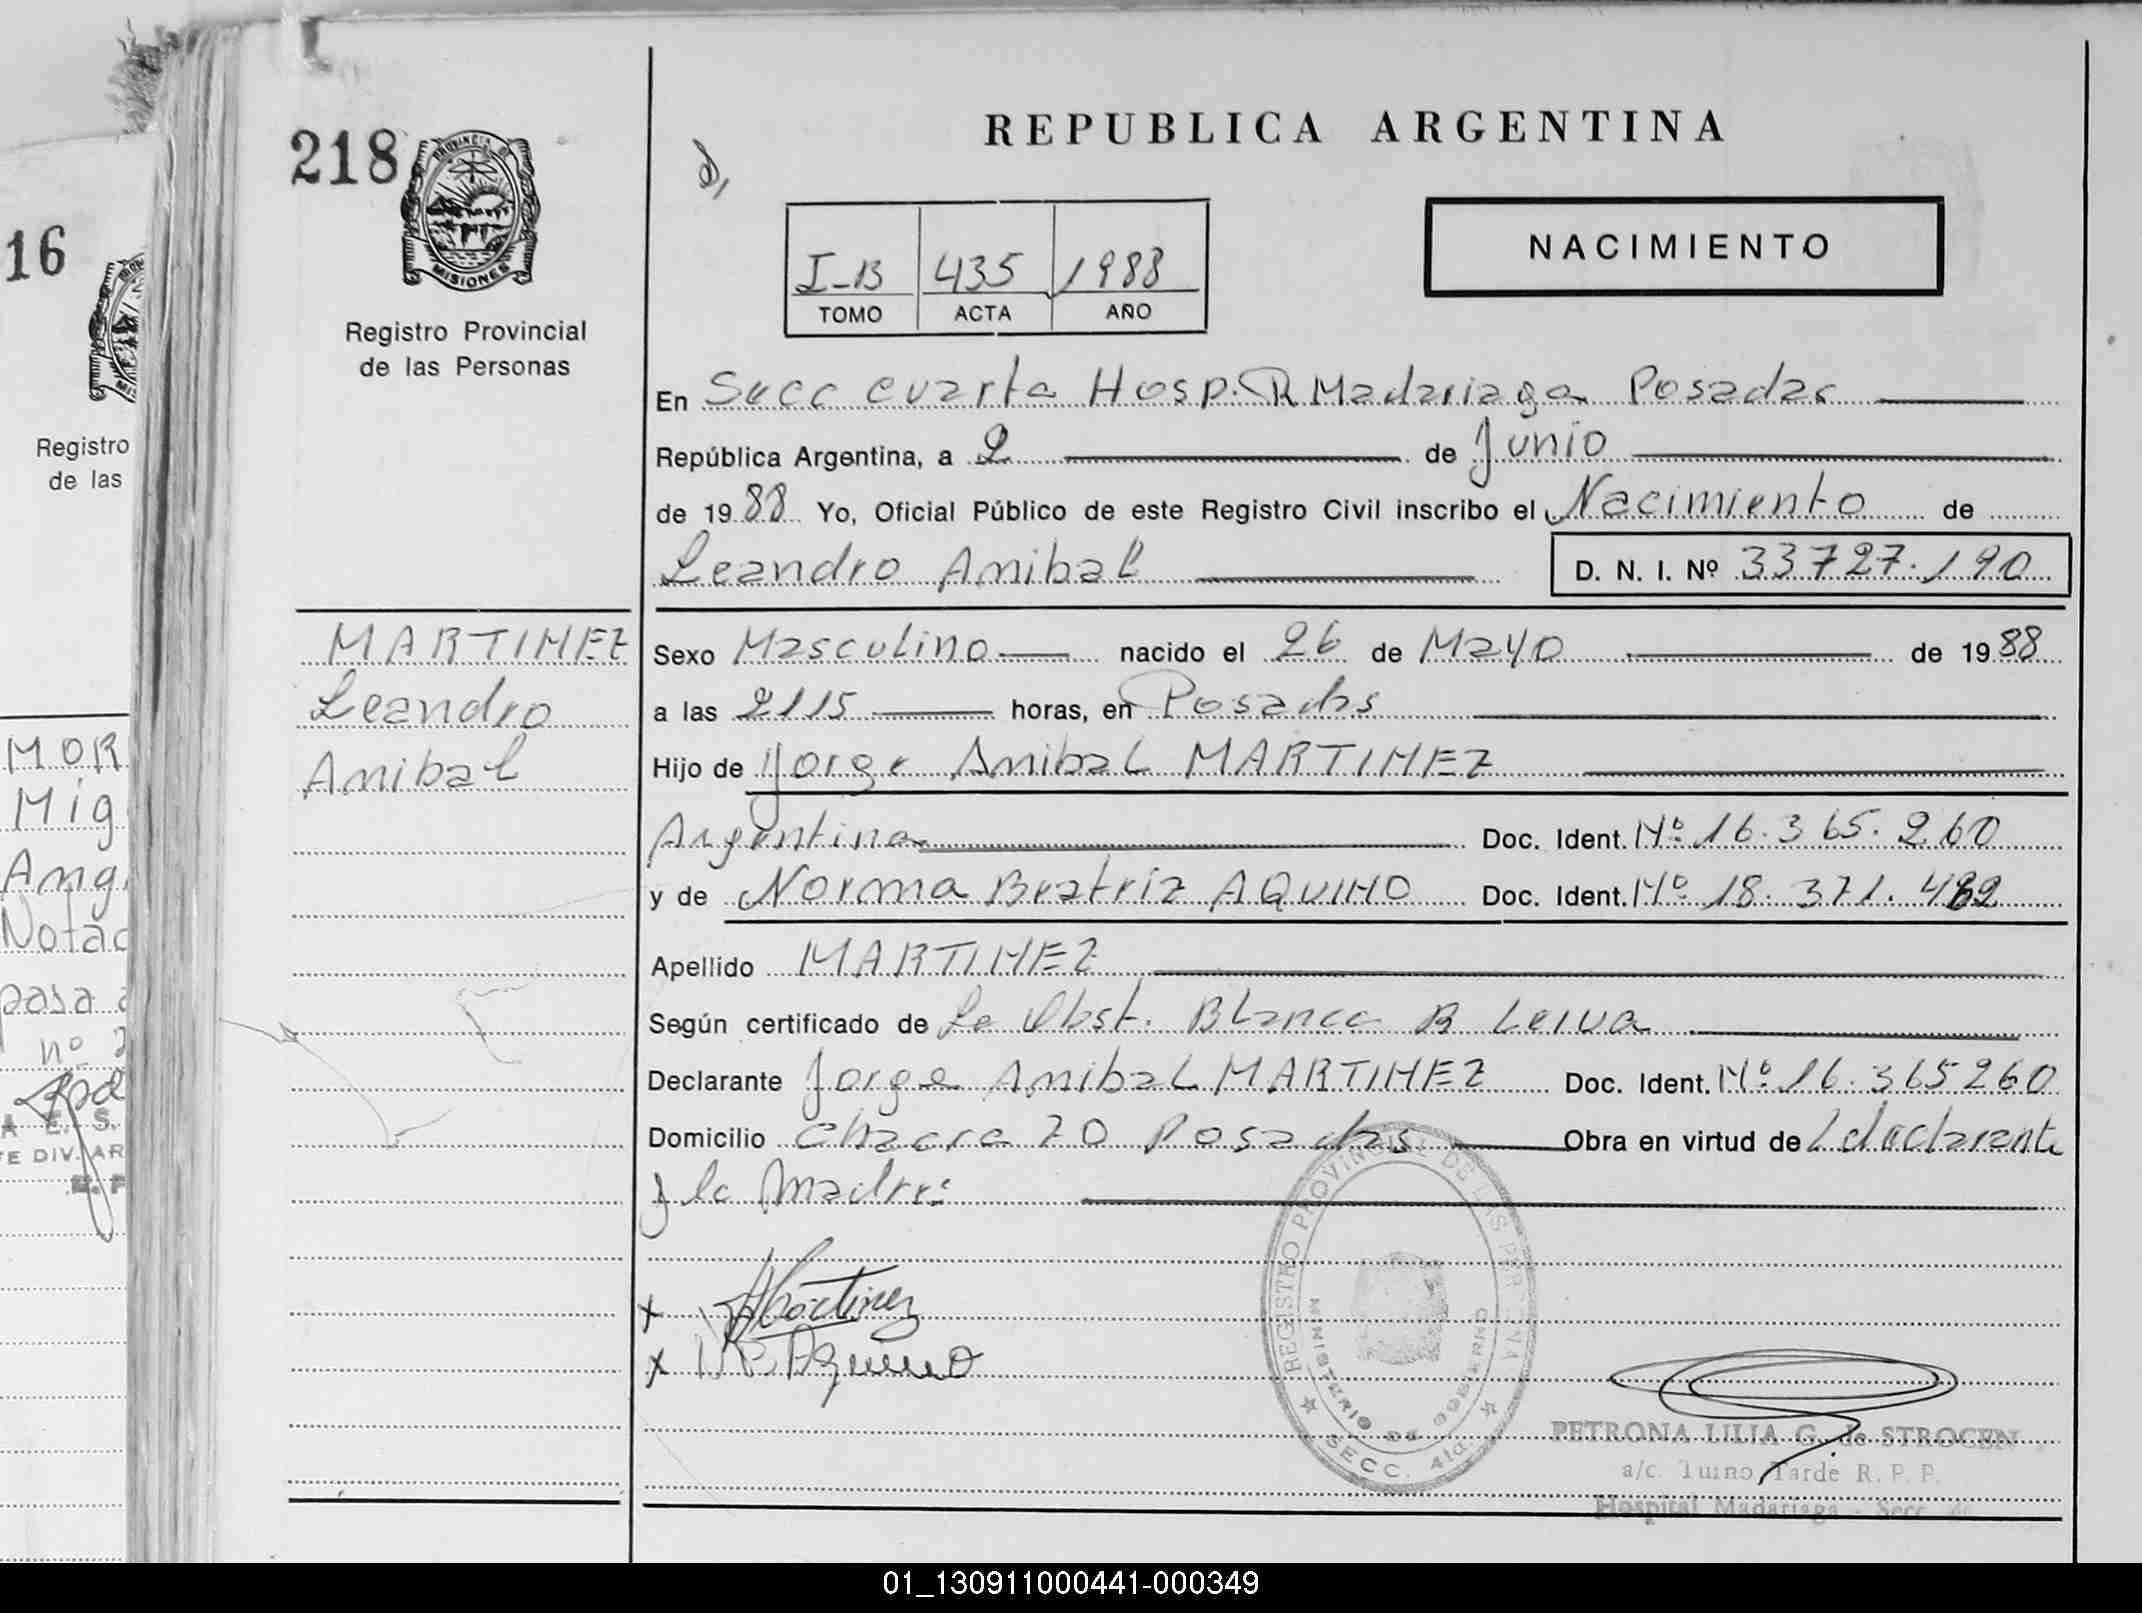 218
PROVINCIA DE
MISIONES
Registro Provincial
de las Personas
REPUBLICA ARGENTINA
NACIMIENTO
I-B 435 1988
TOMO ACTA AÑO
En Secc cuarta Hosp. R Madariaga Posadas
República Argentina, a 2 de Junio
de 1988 Yo, Oficial Público de este Registro Civil inscribo el Nacimiento de
Leandro Anibal D. N. I. Nº 33727.190
MARTINEZ
Leandro
Anibal
Sexo Masculino nacido el 26 de Mayo de 1988
a las 2115 horas, en Posadas
Hijo de Jorge Anibal MARTINEZ
Argentina Doc. Ident. Nº 16.365.260
y de Norma Beatriz AQUINO Doc. Ident. Nº 18.371.482
Apellido MARTINEZ
Según certificado de La Obst. Blanca B Leiva
Declarante Jorge Anibal MARTINEZ Doc. Ident. Nº 16.365260
Domicilio Chacra 70 Posadas Obra en virtud de L declarante
y la Madre:
x Martinez
x N.B. Aquino
REGISTRO PROVINCIAL DE LAS PERSONAS
MINISTERIO DE GOBIERNO
SECC. 4ta.
PETRONA LILIA G. de STROCEN
a/c. Turno Tarde R. P. P.
Hospital Madariaga - Secc.
16
Registro
de las
MOR
Mig
Ang
Notac
pasa a
nº 2
01_130911000441-000349